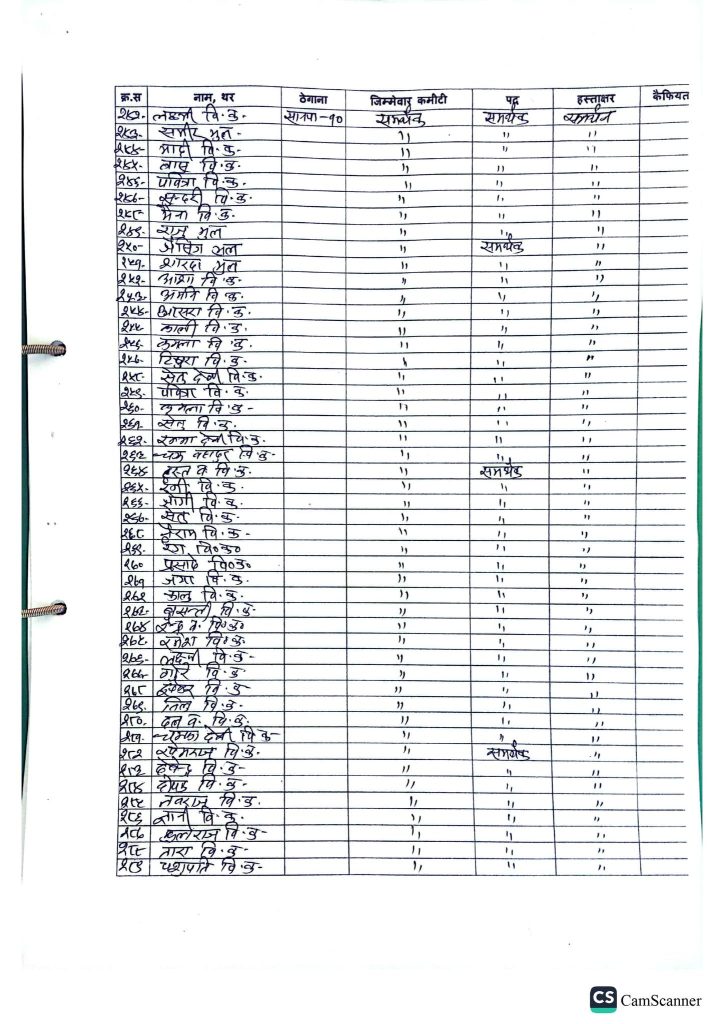 क्र.स नाम, थर ठेगाना जिम्मेवार कमीटी पद हस्ताक्षर कैफियत
लक्ष्मी वि.क. सानपा-१० समर्थक समर्थक समर्थन
समीर मल " " "
२४४- मादी वि.क. " " "
२४५- लालु वि.क. " " "
२४६- पवित्रा वि.क. " " "
२४७- सुन्दरी वि.क. " " "
२४८- मैना वि.क. " " "
२४९- राजु मल " " "
२५०- जैसिंग मल " समर्थक "
२५१- शारदा मल " " "
२५२- आशा वि.क. " " "
२५३- वि.क. " " "
२५४- आसरा वि.क. " " "
२५५- काली वि.क. " " "
२५६- कमला वि.क. " " "
२५७- वि.क. " " "
२५८- सेतु देवी वि.क. " " "
२५९- पवित्रा वि.क. " " "
२६०- वि.क- " " "
२६१- सेतु वि.क. " " "
२६२- देवी वि.क. " " "
२६३- चक्र बहादुर वि.क- " " "
२६४ हस्त व. वि.क. " समर्थक "
२६५- रनी वि.क. " " "
२६६- वि.क. " " "
२६७- सेतु वि.क. " " "
२६८ जैराम वि.क- " " "
२६९- वि०क० " " "
२७० प्रसादे वि०क० " " "
२७१ जया वि.क. " " "
२७२ कालु वि.क. " " "
२७३- बासन्ती वि.क- " " "
२७४ इन्द्र व. वि०क० " " "
२७५- रमेश वि०क. " " "
२७६- लक्ष्मी वि.क- " " "
२७७- गोरे वि.क " " "
२७८ वि.क " " "
२७९- तिल वि.क. " " "
२८०- दल व. वि.क. " " "
२८१- चम्फा देवी वि.क- " " "
२८२ खेमराज वि.क. " समर्थक "
२८३ देवेन्द्र वि.क- " " "
२८४ दीपक वि.क- " " "
२८५ नवराज वि.क. " " "
२८६ वि.क. " " "
२८७ वि.क- " " "
२८८- तारा वि.क- " " "
२८९ पशुपति वि.क- " " "
CS CamScanner